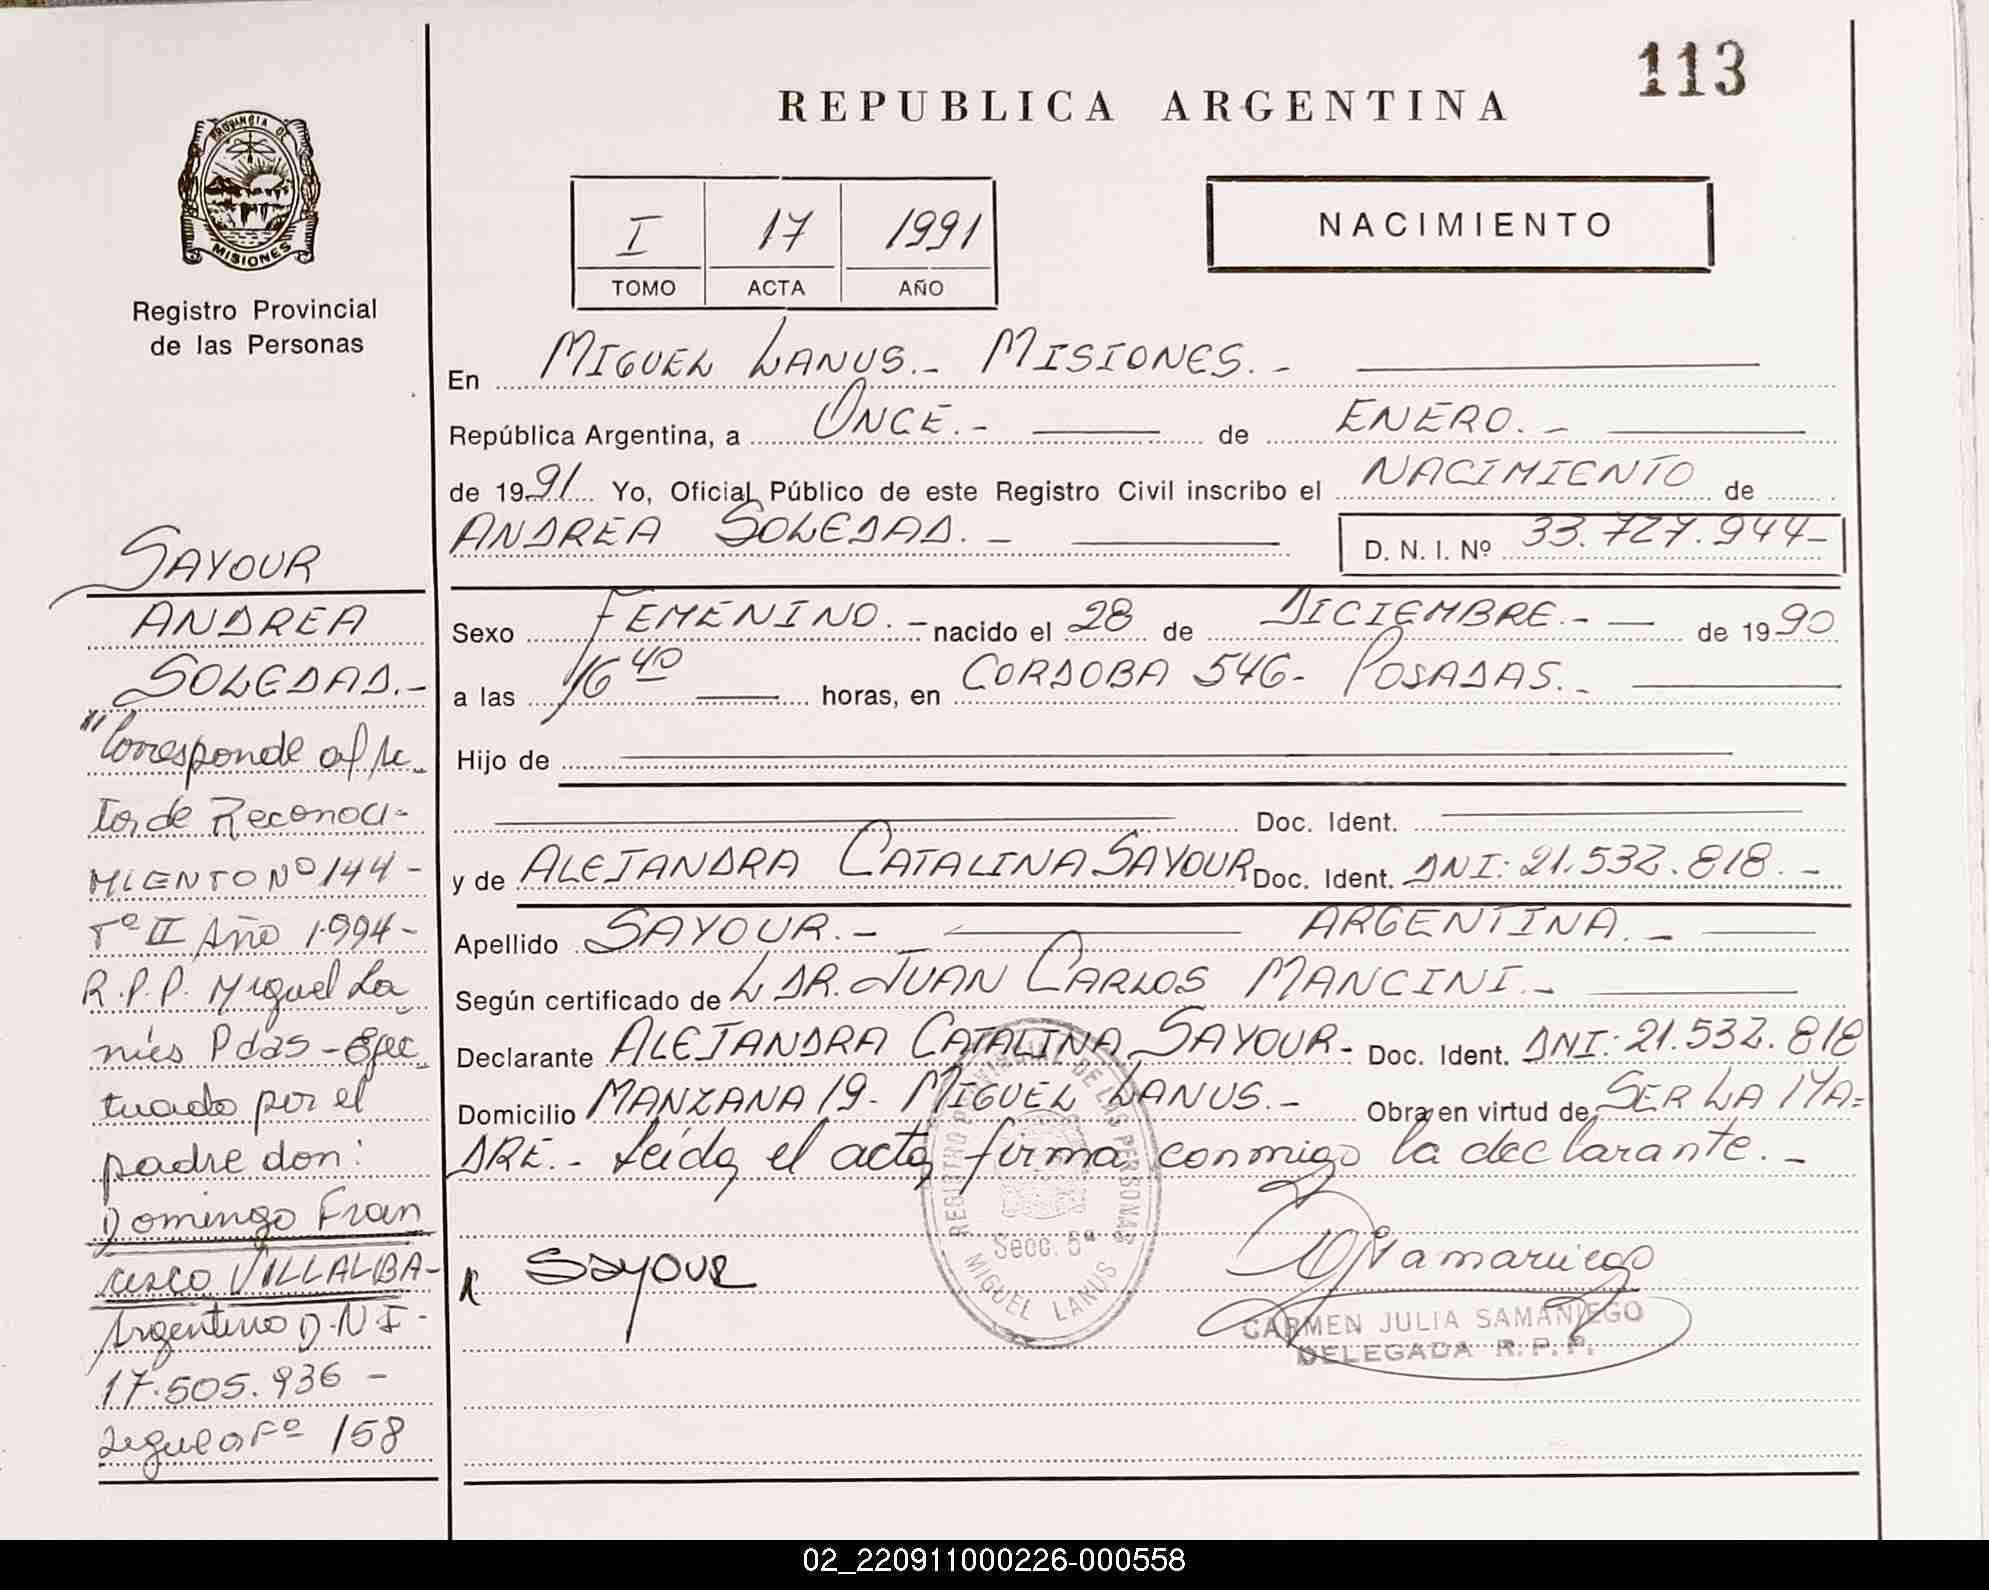 113
REPUBLICA ARGENTINA
PROVINCIA DE
MISIONES
Registro Provincial
de las Personas
I 17 1991
TOMO ACTA AÑO
NACIMIENTO
En MIGUEL LANUS.- MISIONES.-
República Argentina, a ONCE.- de ENERO.-
de 1991 Yo, Oficial Público de este Registro Civil inscribo el NACIMIENTO de
ANDREA SOLEDAD.- D. N. I. Nº 33.727.944-
Sexo FEMENINO.- nacido el 28 de DICIEMBRE.- de 1990
a las 16 40 horas, en CORDOBA 546- POSADAS.-
Hijo de
Doc. Ident.
y de ALEJANDRA CATALINA SAYOUR Doc. Ident. DNI: 21.532.818.-
Apellido SAYOUR.- ARGENTINA.-
Según certificado de L DR. JUAN CARLOS MANCINI.-
Declarante ALEJANDRA CATALINA SAYOUR- Doc. Ident. DNI: 21.532.818
Domicilio MANZANA 19- MIGUEL LANUS.- Obra en virtud de SER LA MA=
DRE.- Leída el acta firma conmigo la declarante.-
SAYOUR
REGISTRO PROVINCIAL DE LAS PERSONAS
Secc. 5ª
MIGUEL LANUS
CARMEN JULIA SAMANIEGO
DELEGADA R.P.P.
SAYOUR
ANDREA
SOLEDAD.-
"Corresponde al Ac-
ta de Reconoci-
MIENTO Nº 144-
Tº II Año 1994-
R.P.P. Miguel La
nús Pdas-Efec
tuado por el
padre don:
Domingo Fran
cisco VILLALBA-
Argentino D.N.I-
17.505.936-
Sigue a Fº 158
02_220911000226-000558